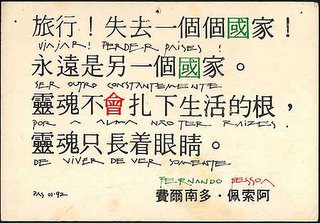 旅行！失去一個個國家！
VIAJAR! PERDER PAÍSES!
永遠是另一個國家。
SER OUTRO CONSTANTEMENTE
靈魂不會扎下生活的根，
POR A ALMA NÃO TER RAÍZES
靈魂只長着眼睛。
DE VIVER DE VER SOMENTE
FERNANDO PESSOA
費爾南多·佩索阿